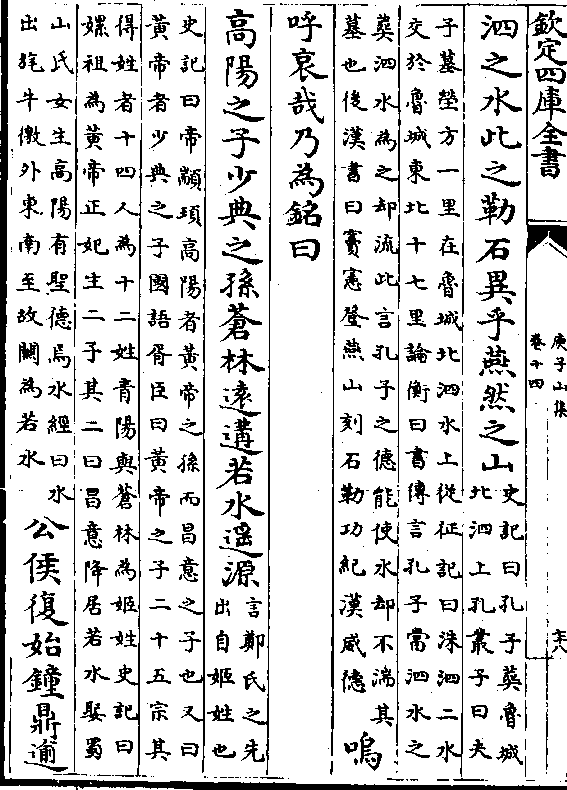 欽定四庫全書
庚子山集
卷十四
泗之水此之勒石異乎燕然之山
史記曰孔子葬魯城
北泗上孔叢子曰夫
子墓塋方一里在魯城北泗水上從征記曰洙泗二水
交於魯城東北十七里論衡曰書傳言孔子當泗水之
葬泗水為之却流此言孔子之德能使水却不湍其
墓也後漢書曰竇憲登燕山刻石勒功紀漢威德
嗚
呼哀哉乃為銘曰
高陽之子少典之孫蒼林遠遘若水遥源
言鄭氏之先
出自姬姓也
史記曰帝顓頊高陽者黄帝之孫而昌意之子也又曰
黄帝者少典之子國語胥臣曰黄帝之子二十五宗其
得姓者十四人為十二姓青陽與蒼林為姬姓史記曰
嫘祖為黄帝正妃生二子其二曰昌意降居若水娶蜀
山氏女生高陽有聖德焉水經曰水
出旄牛徼外東南至故關為若水
公侯復始鐘鼎逾